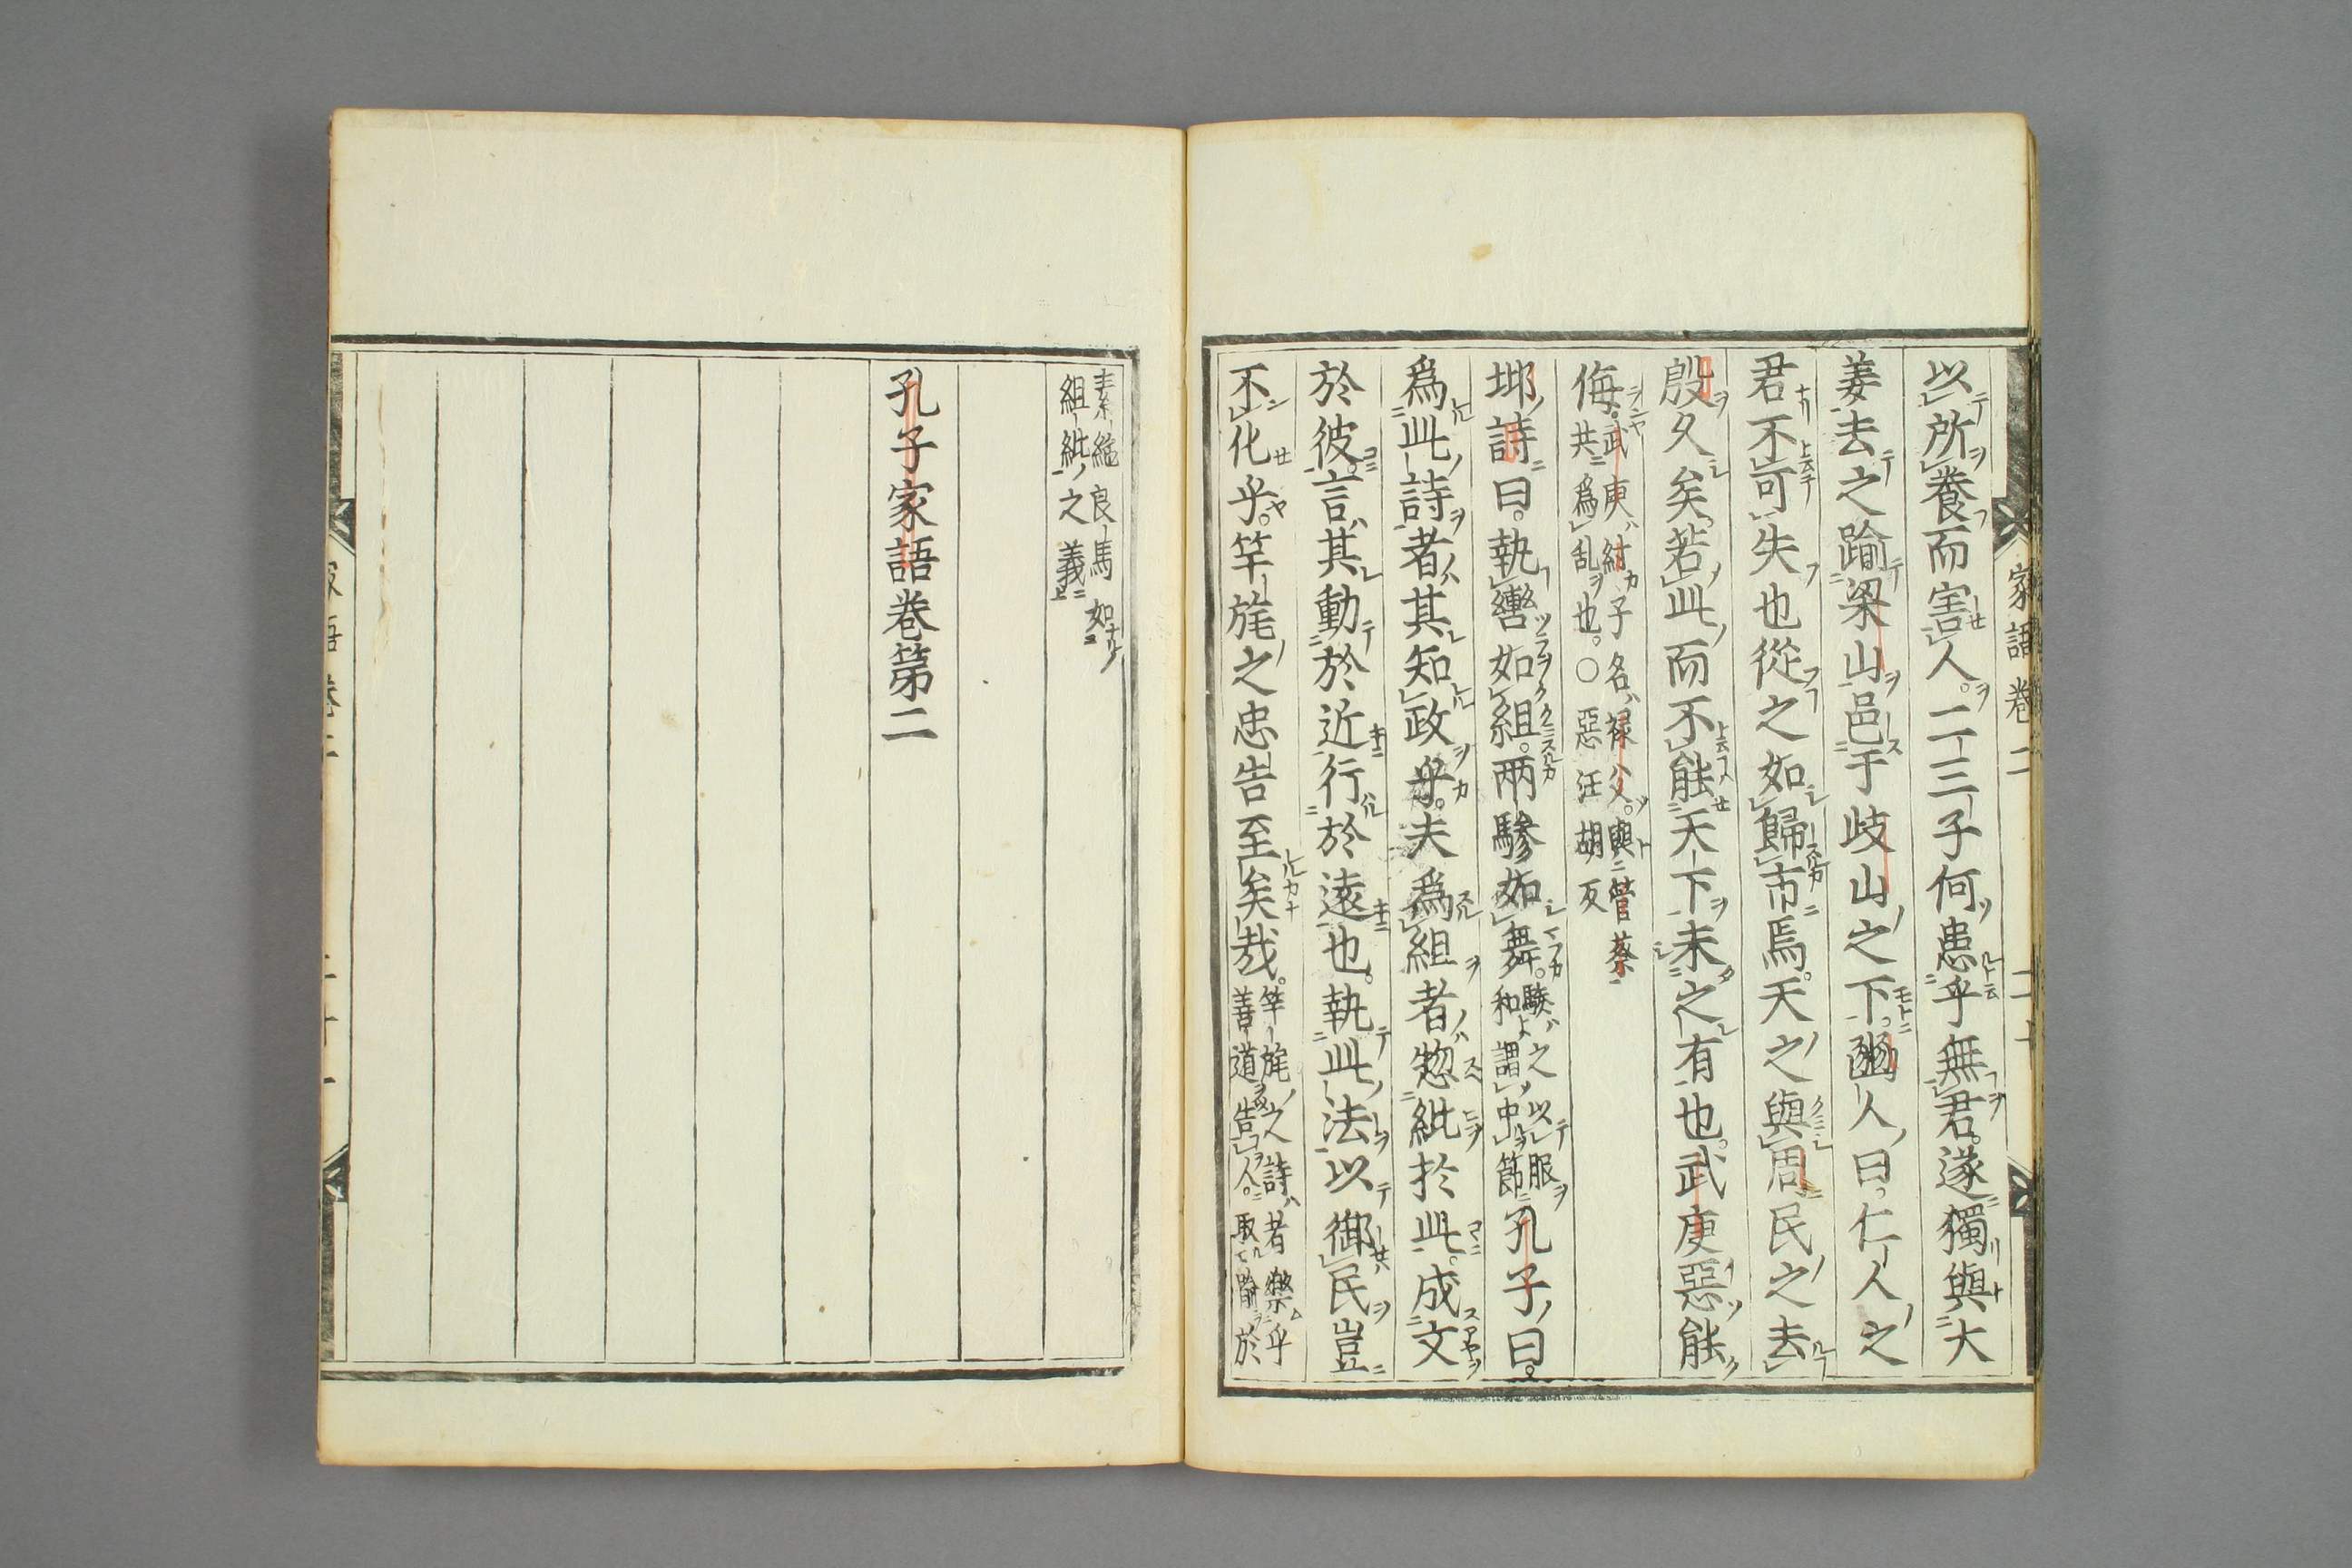 家語卷二 二十
以所養而害人。二三子何患乎無君。遂獨與大
姜去之踰梁山邑于歧山之下。豳人曰。仁人之
君不可失也從之如歸市焉。天之與周民之去
殷久矣。若此而不能天下未之有也。武庚惡能
侮。武庚紂子名禄父。與管蔡
共爲乱也。〇惡汪胡反
邶詩曰。執轡如組。兩驂如舞。驂之以服
和謂中節 孔子曰。
爲此詩者其知政乎。夫爲組者惣紕於此。成文
於彼。言其動於近行於遠也。執此法以御民豈
不化乎。竿旄之忠告至矣哉。竿旄之詩者樂乎
善道告人。取喻於
素絲良馬如
組紕之義
孔子家語卷第二